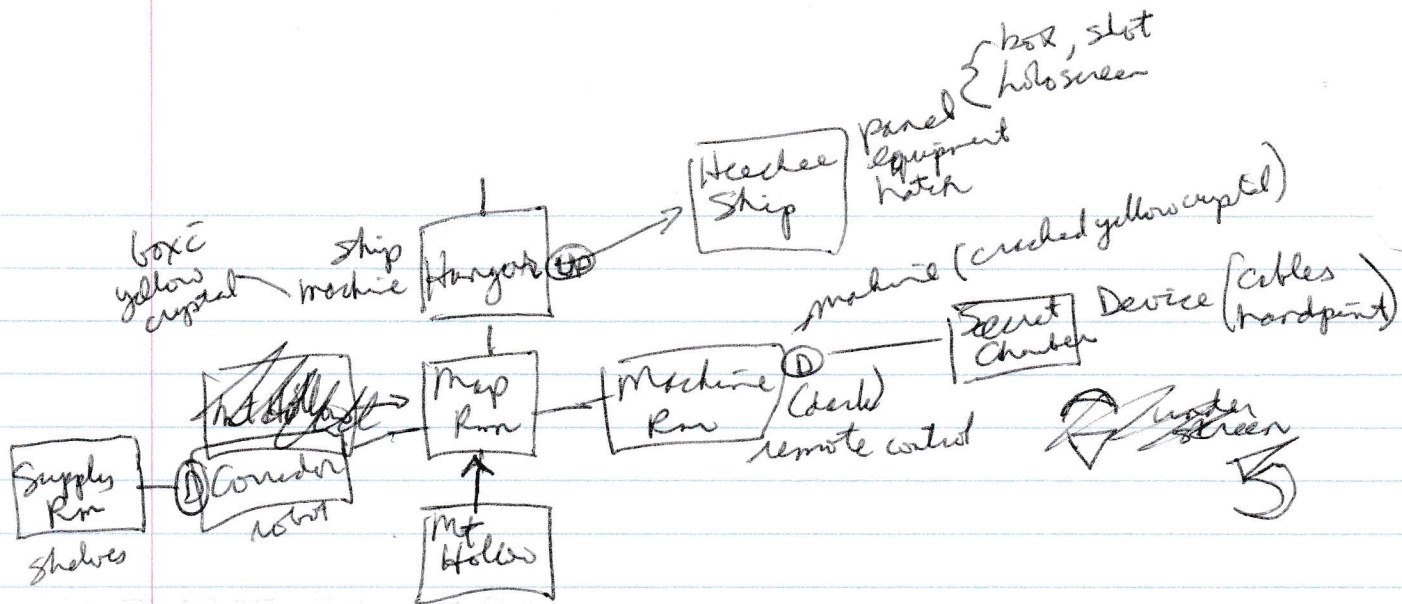 box, slot
holoscreen
panel
equipment
hatch
Heechee
Ship
box c̄
yellow
crystal
ship
machine
Hangar
UP
machine (cracked yellow crystal)
Secret
Chamber
Device (cables
hardpoint)
Map
Rm
Machine
Rm
D
(dark)
remote control
under
screen
5
Supply
Rm
shelves
D
Corridor
robot
Mt
Hollow